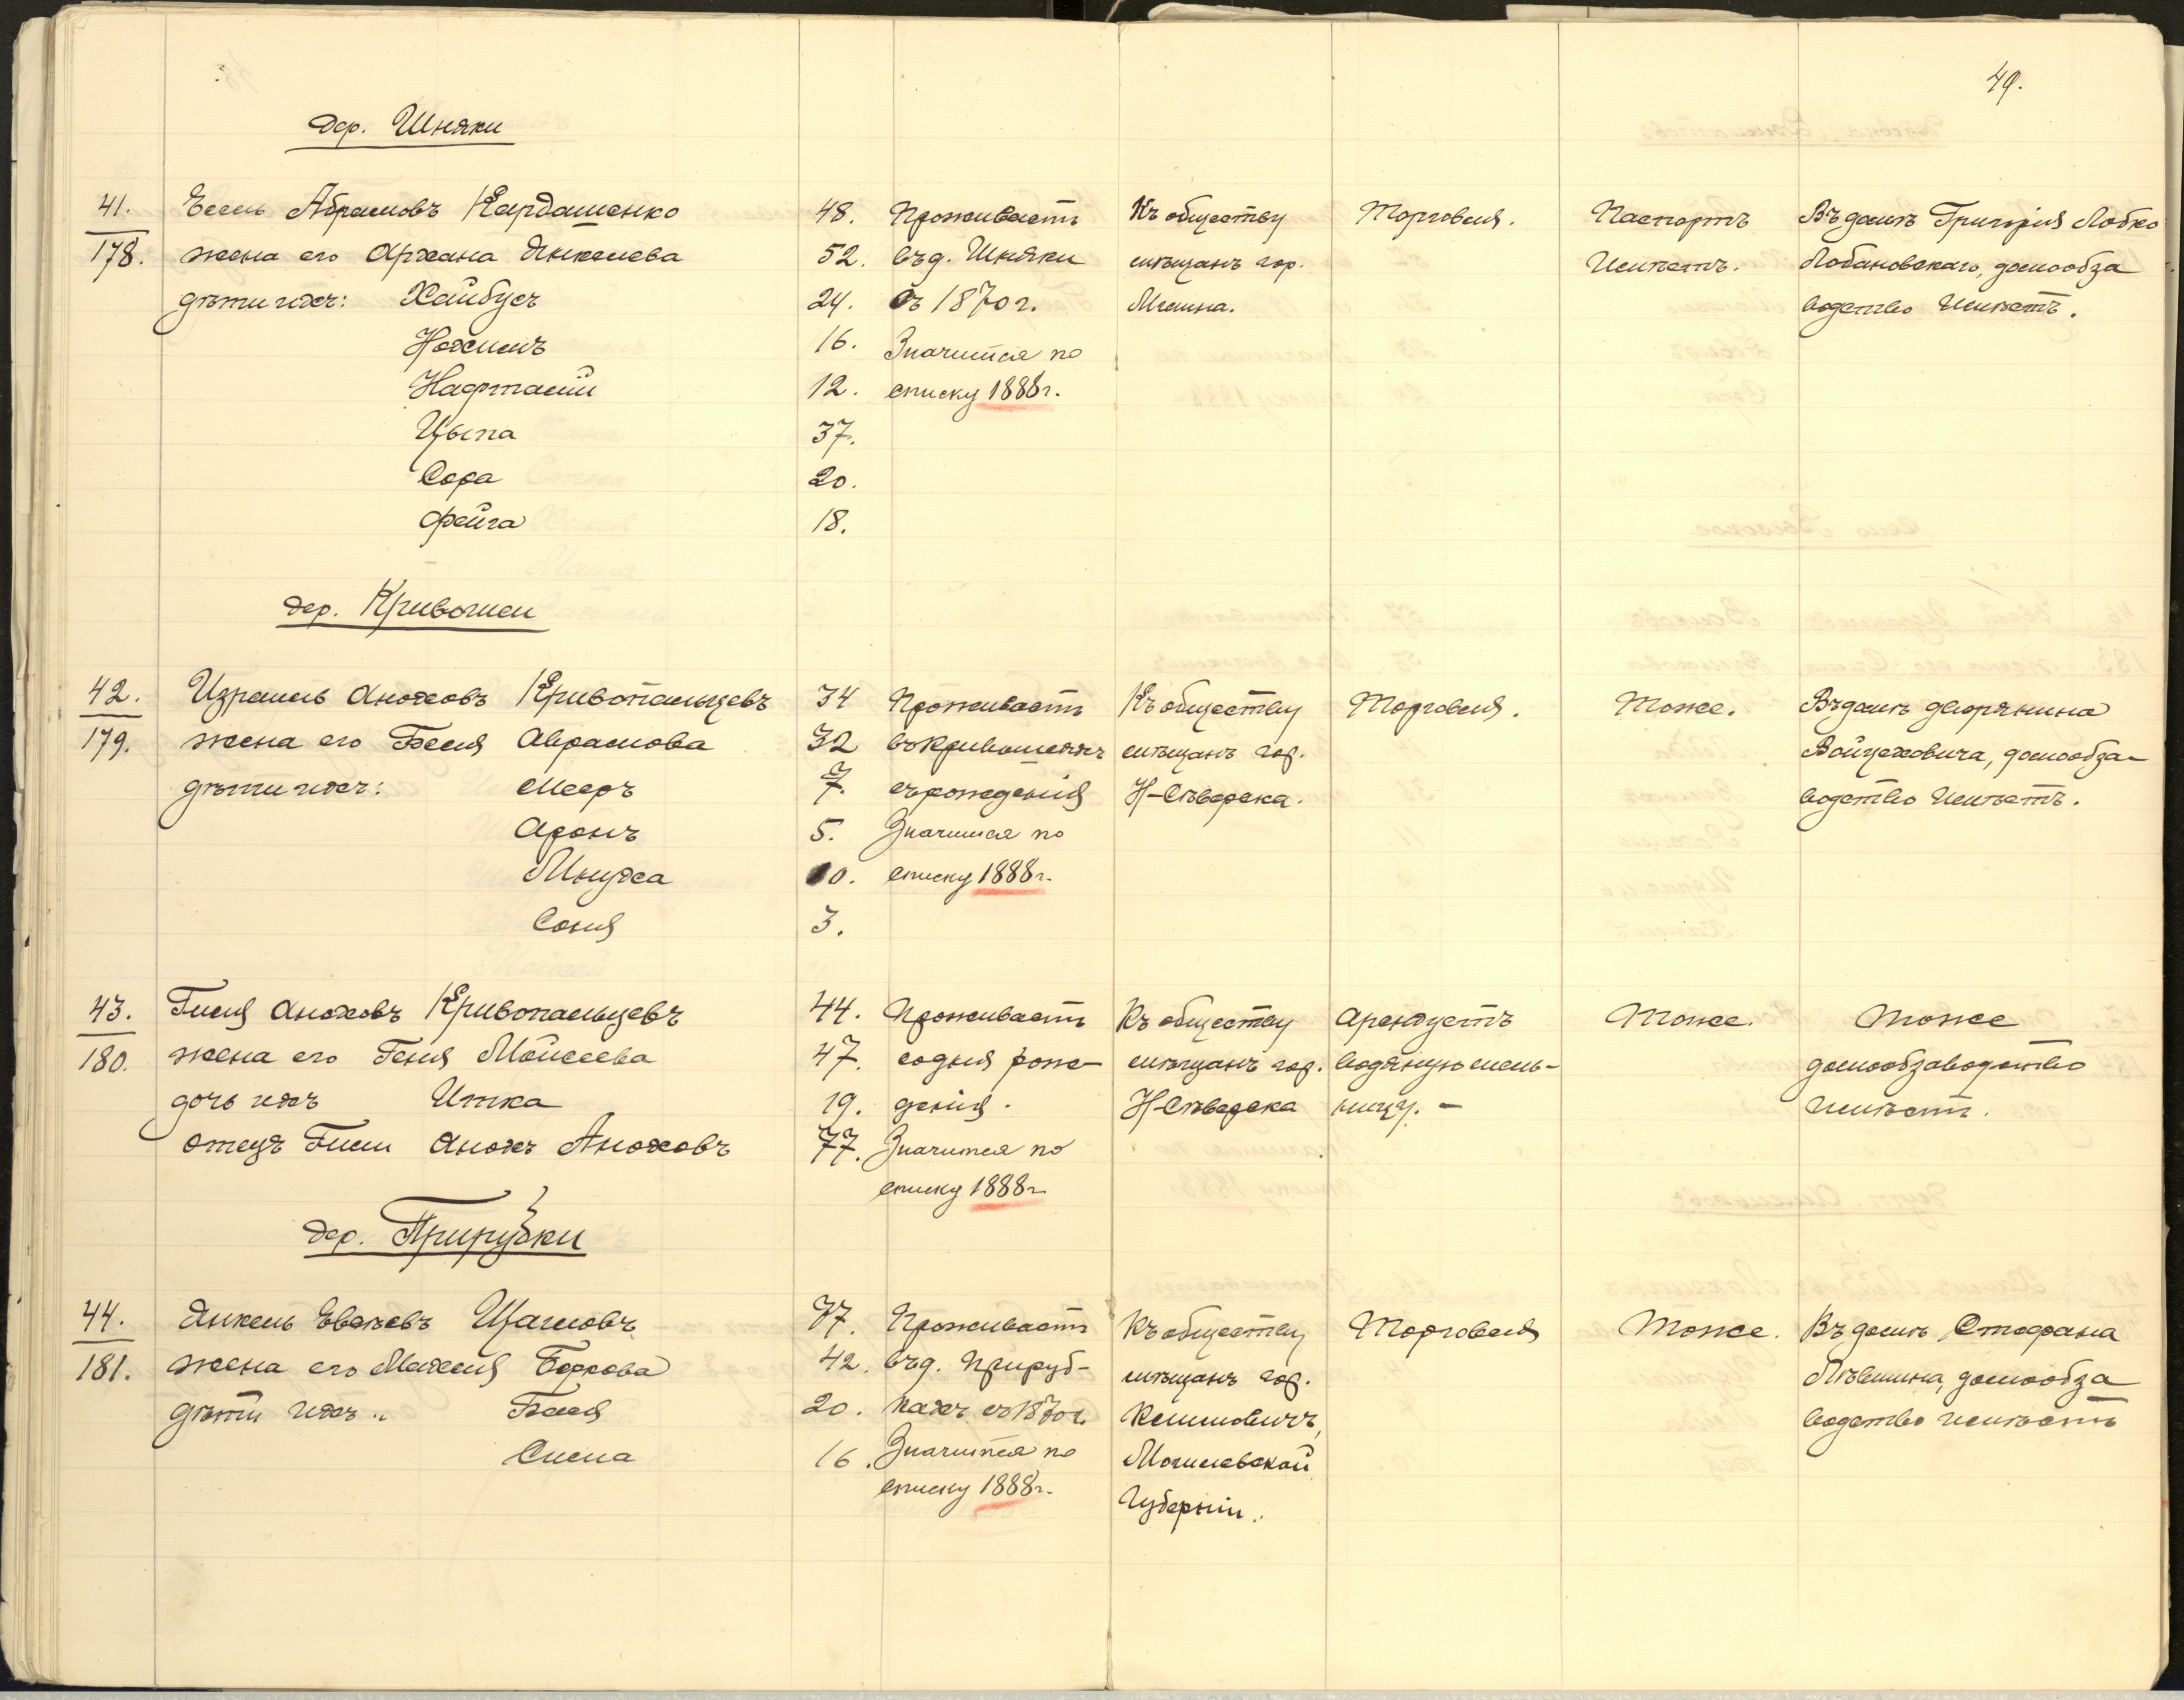 49.
дер. Шняки
41. Есель Абрамовъ Кардашенко 48. Проживаетъ Къ обществу Торговля. Паспортъ Въ домѣ Григорія Лобко
178. жена его Архана Янкелева 52. въ д. Шняки мѣщанъ гор. Имѣетъ. Лобановскаго, домообза
дѣти ихъ: Хайбусъ 24. съ 1870 г. Мглина. водство имѣетъ.
Нохимъ 16. Значится по
Нафталій 12. списку 1888 г.
Цыпа 37.
Сора 20.
Фейга 18.
дер. Кривошеи
42. Израиль Аноховъ Кривопальцевъ 34 Проживаетъ Къ обществу Торговля. Тоже. Въ домѣ дворянина
179. жена его Бася Абрамова 32 въ Кривошеяхъ мѣщанъ гор. Войцеховича, домообза-
дѣти ихъ: Мееръ 7. съ рожденія Н-Сѣверска. водство имѣетъ.
Аронъ 5. Значится по
Мнуха 10. списку 1888 г.
Соня 3.
43. Гиля Аноховъ Кривопальцевъ 44. Проживаетъ Къ обществу Арендуетъ Тоже. Тоже
180. жена его Геня Мойсеева 47. со дня рож- мѣщанъ гор. водяную мель- домообзаводство
дочь ихъ Итка 19. денія. Н-Сѣверска ницу. - имѣетъ.
отецъ Гили Анохъ Аноховъ 77. Значится по
списку 1888 г.
дер. Прирубки
44. Янкель Щагловъ 37. Проживаетъ Къ обществу Торговля Тоже. Въ домѣ Стефана
181. жена его Махля Беркова 42. въ д. Прируб- мѣщанъ гор. Лѣвшина, домообза
дѣти ихъ: Бася 20. кахъ съ 1870 г. Климовичъ, водство имѣетъ
Сима 16. Значится по Могилевской
списку 1888 г. Губерніи.